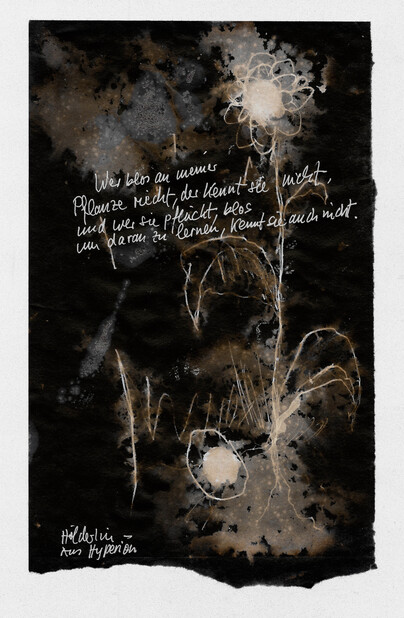 Wer blos an meiner
Pflanze riecht, der kennt sie nicht,
und wer sie pflückt, blos
um daran zu lernen, kennt sie auch nicht.
Hölderlin –
Aus Hyperion